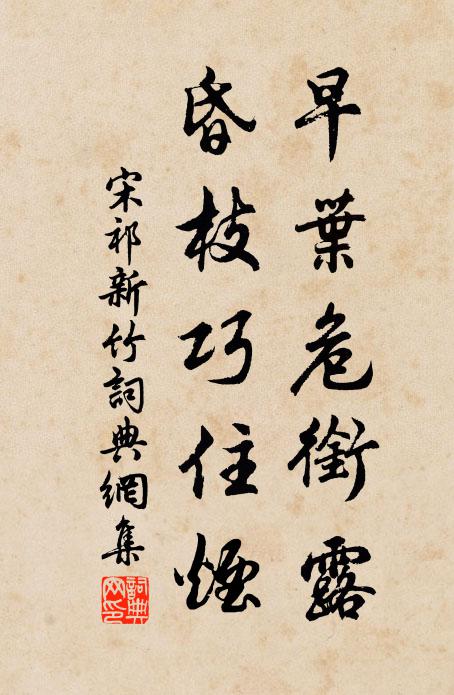 早葉危銜露
昏枝巧住煙
宋祁新竹詞典網集
詞典
网印